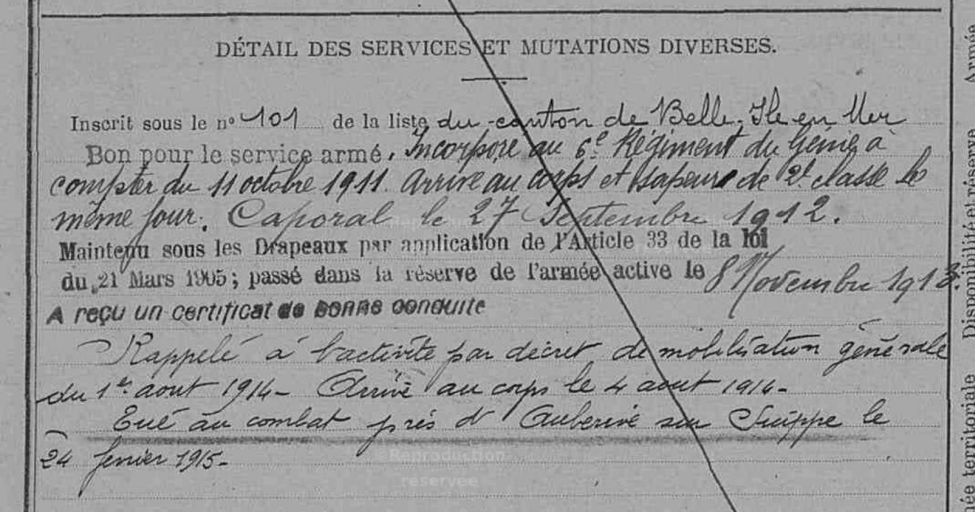 DÉTAIL DES SERVICES ET MUTATIONS DIVERSES.
Inscrit sous le n° 101 de la liste du canton de Belle-Ile en Mer
Bon pour le service armé. Incorporé au 6e Régiment du Génie à
compter du 11 octobre 1911. Arrivé au corps et sapeur de 2e classe le
même jour. Caporal le 27 Septembre 1912.
Maintenu sous les Drapeaux par application de l'Article 33 de la loi
du 21 Mars 1905 ; passé dans la réserve de l'armée active le 8 Novembre 1913.
A reçu un certificat de bonne conduite
Rappelé à l'activité par décret de mobilisation générale
du 1er aout 1914 - Arrivé au corps le 4 aout 1914 -
Tué au combat près d'Auberive sur Suippe le
24 fevrier 1915 -
Reproduction
réservée
Armée
Disponibilité et réserve
ée territoriale